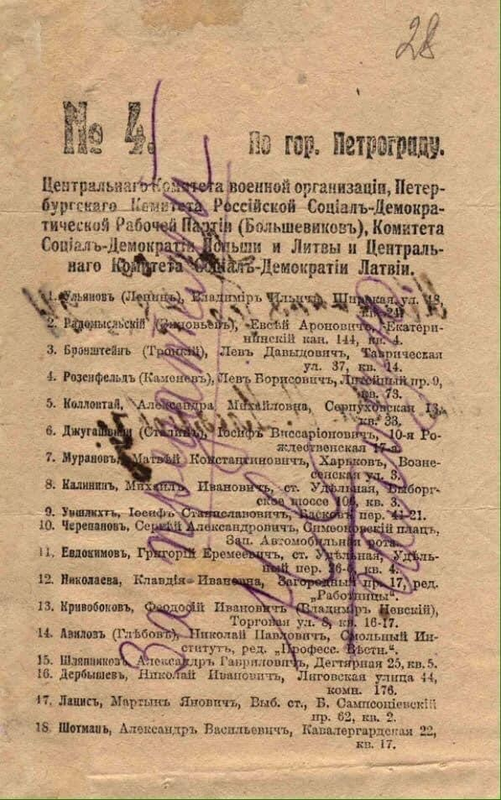 28
№ 4. По гор. Петрограду.
Центральнаго Комитета военной организаціи, Петер-
бургскаго Комитета Россійской Соціалъ-Демокра-
тической Рабочей Партіи (Большевиковъ), Комитета
Соціалъ-Демократіи Польши и Литвы и Централь-
наго Комитета Соціалъ-Демократіи Латвіи.
1. Ульяновъ (Ленинъ), Владиміръ Ильичъ, Широкая ул. 48,
кв. 24.
2. Радомысльскій (Зиновьевъ), Евсѣй Ароновичъ, Екатери-
нинскій кан. 144, кв. 4.
3. Бронштейнъ (Троцкій), Левъ Давыдовичъ, Таврическая
ул. 37, кв. 24.
4. Розенфельдъ (Каменевъ), Левъ Борисовичъ, Литейный пр. 9,
кв. 73.
5. Коллонтай, Александра Михайловна, Серпуховская 13,
кв. 33.
6. Джугашвили (Сталинъ), Іосифъ Виссаріоновичъ, 10-я Ро-
ждественская
7. Мурановъ, Матвѣй Константиновичъ, Харьковъ, Возне-
сенская ул. 3.
8. Калининъ, Михаилъ Ивановичъ, ст. Удѣльная, Выборг-
ское шоссе 106, кв. 3.
9. Уншлихтъ, Іосифъ Станиславовичъ, Басковъ пер. 41-21.
10. Черепановъ, Сергѣй Александровичъ, Симеоновскій плацъ,
Зап. Автомобильная рота.
11. Евдокимовъ, Григорій Еремеевичъ, ст. Удѣльная, Удѣль-
ный пер. кв. 4.
12. Николаева, Клавдія Ивановна, Загородный пр. 17, ред.
„Работницы“.
13. Кривобоковъ, Феодосій Ивановичъ (Владиміръ Невскій),
Торговая ул. 8, кв. 16-17.
14. Авиловъ (Глѣбовъ), Николай Павловичъ, Смольный Ин-
ститутъ, ред. „Професс. Вѣстн.“.
15. Шляпниковъ, Александръ Гавриловичъ, Дегтярная 25, кв. 5.
16. Дербышевъ, Николай Ивановичъ, Лиговская улица 44,
комн. 176.
17. Лацисъ, Мартынъ Яновичъ, Выб. ст., Б. Сампсоніевскій
пр. 62, кв. 2.
18. Шотманъ, Александръ Васильевичъ, Кавалергардская 22,
кв. 17.